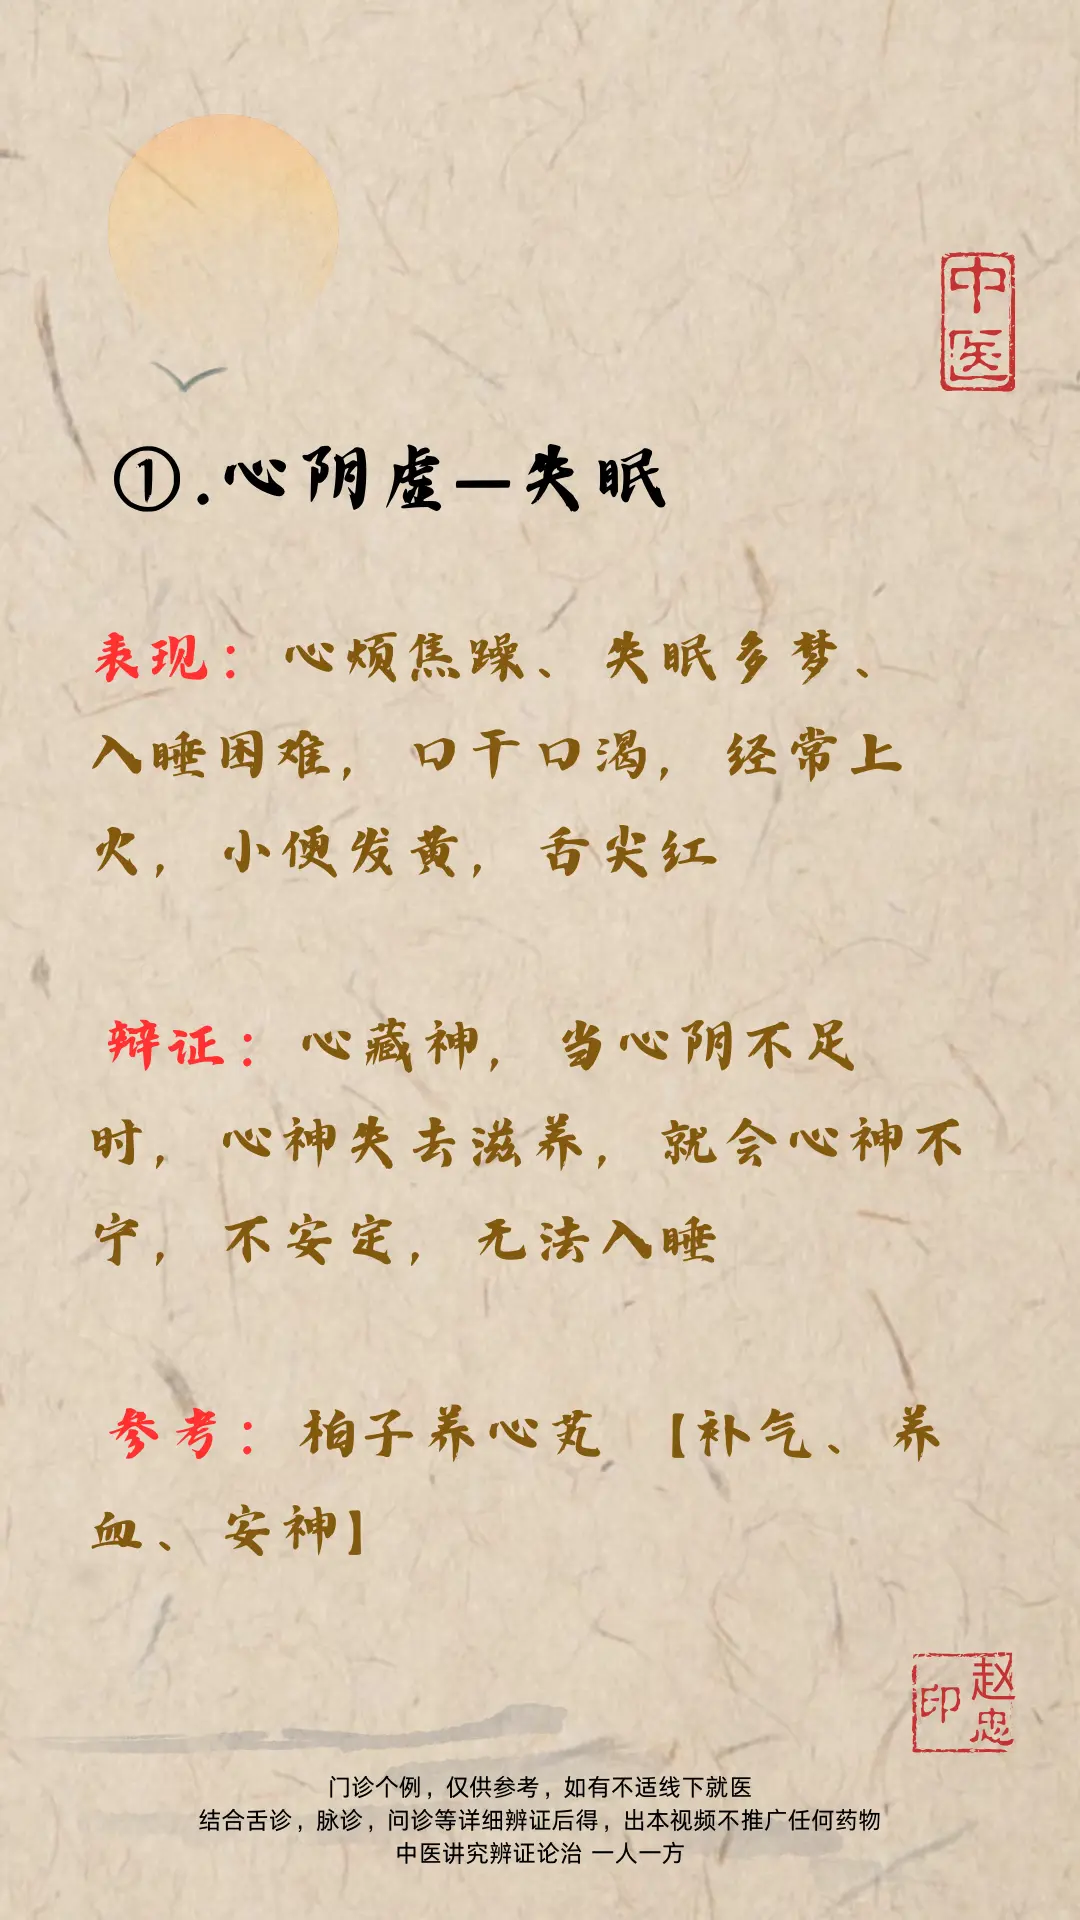 中医
①.心阴虚—失眠
表现：心烦焦躁、失眠多梦、
入睡困难，口干口渴，经常上
火，小便发黄，舌尖红
辩证：心藏神，当心阴不足
时，心神失去滋养，就会心神不
宁，不安定，无法入睡
参考：柏子养心苋 【补气、养
血、安神】
赵忠印
门诊个例，仅供参考，如有不适线下就医
结合舌诊，脉诊，问诊等详细辨证后得，出本视频不推广任何药物
中医讲究辨证论治 一人一方